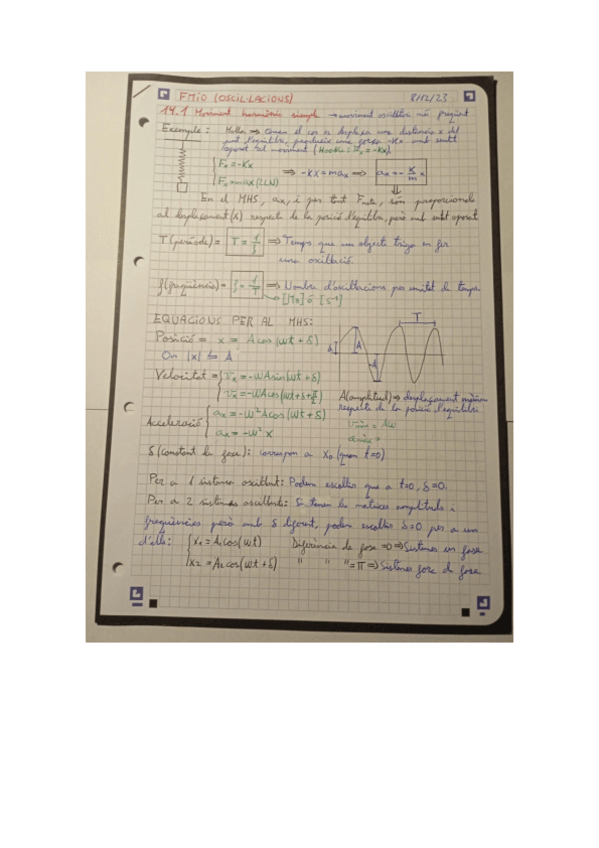 FMiO (OSCIL·LACIONS) 8/12/23
14.1 Moviment harmònic simple → moviment oscil·latori més freqüent
Exemple: Molla ⇒ Quan el cos es desplaça una distància x del
punt d'equilibri, produeix una força -Kx amb sentit
oposat al moviment (Hooke: Fx = -Kx)
Fx = -Kx
Fx = m·ax (2LN)
⇒ -Kx = max ⇒ ax = - K/m x
En el MHS, ax, i per tant Fneta, són proporcionals
al desplaçament (A) respecte de la posició d'equilibri, però amb sentit oposat
T (període) = T = 1/f ⇒ Temps que un objecte triga en fer
una oscil·lació.
f (freqüència) = f = 1/T ⇒ Nombre d'oscil·lacions per unitat de temps
→ [Hz] ó [s⁻¹]
EQUACIONS PER AL MHS:
Posició = x = A cos (ωt + δ)
On |x| ≤ A
Velocitat = vx = -ωA sin (ωt + δ)
vx = -ωA cos (ωt + δ + π/2)
Acceleració ax = -ω² A cos (ωt + δ)
ax = -ω² x
T
A
-A
A (amplitud) ⇒ desplaçament màxim
respecte de la posició d'equilibri
vmàx = Aω
amàx =
δ (constant de fase): correspon a x₀ (quan t=0)
Per a 1 sistema oscil·lant: Podem escollir que a t=0, δ=0.
Per a 2 sistemes oscil·lants: Si tenen les mateixes amplituds i
freqüències però amb δ diferent, podem escollir δ=0 per a un
d'ells: x₁ = A₁ cos (ωt) Diferència de fase = 0 ⇒ Sistemes en fase
x₂ = A₂ cos (ωt + δ) " " " = π ⇒ Sistemes fora de fase